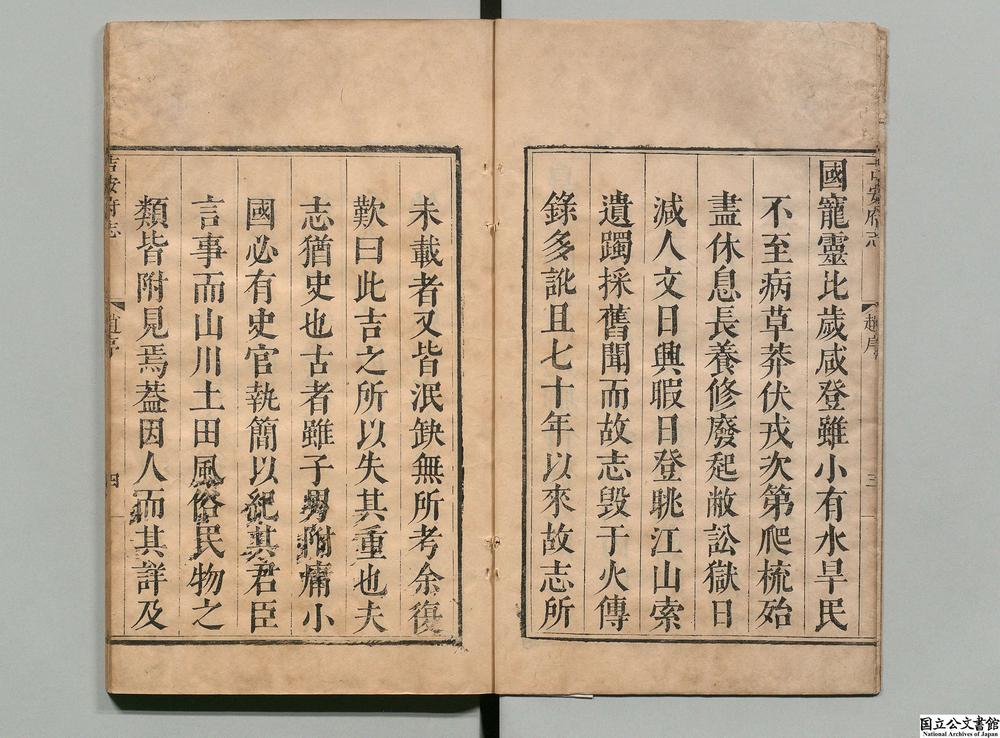 國寵靈比歲咸登雖小有水旱民
不至病草莽伏戎次第爬梳殆
盡休息長養修廢起敝訟獄日
減人文日興暇日登眺江山索
遺躅採舊聞而故志毀于火傳
錄多訛且七十年以來故志所
未載者又皆泯缺無所考余復
歎曰此吉之所以失其重也夫
志猶史也古者雖子男附庸小
國必有史官執簡以紀其君臣
言事而山川土田風俗民物之
類皆附見焉蓋因人而其詳及
吉安府志
趙序
三
吉安府志
趙序
四
国立公文書館
National Archives of Japan